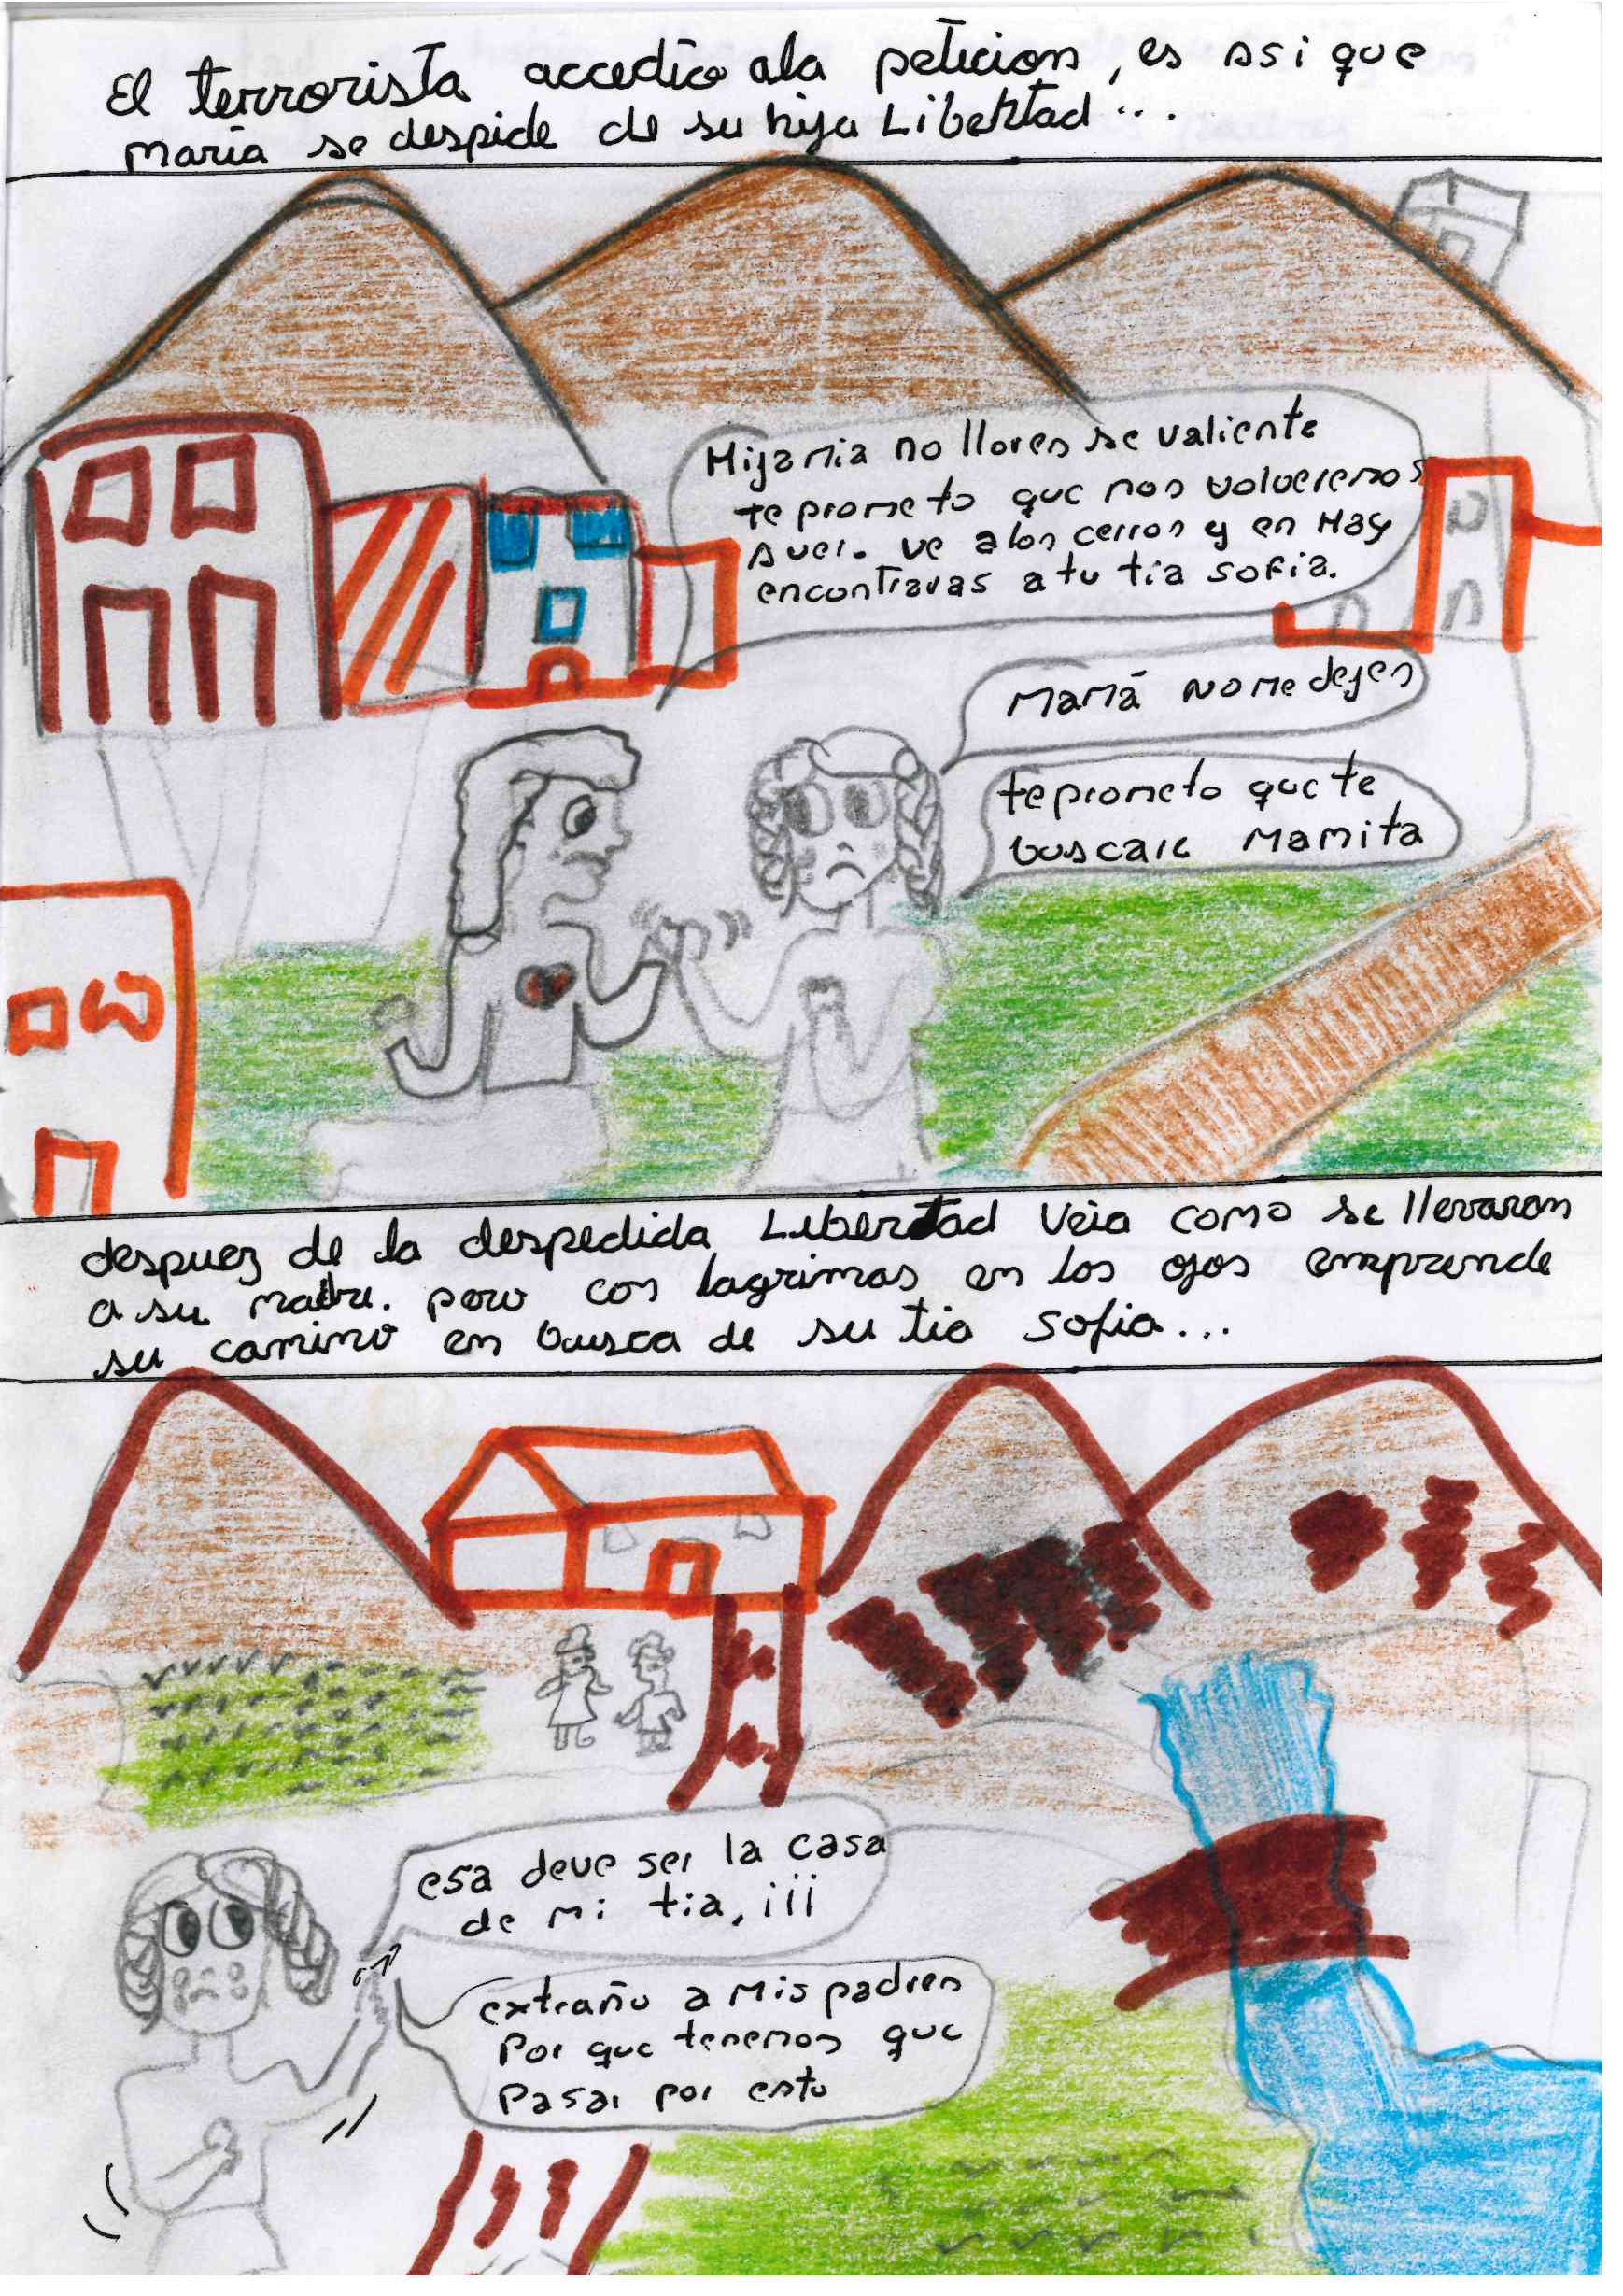 El terrorista accedio ala peticion, es asi que
maria se despide de su hija Libertad...
Hija mia no llores se valiente
te prometo que nos volveremos
a ver. ve a los cerros y en Hay
encontraras a tu tia sofia.
Mamá no me dejes
te prometo que te
buscare Mamita
despuez de la despedida Libertad Veia como se llevaron
a su madre. pero con lagrimas en los ojos emprende
su camino en busca de su tia sofia...
esa deve ser la casa
de mi tia, ¡¡¡
extraño a Mis padres
Por que tenemos que
Pasar por esto